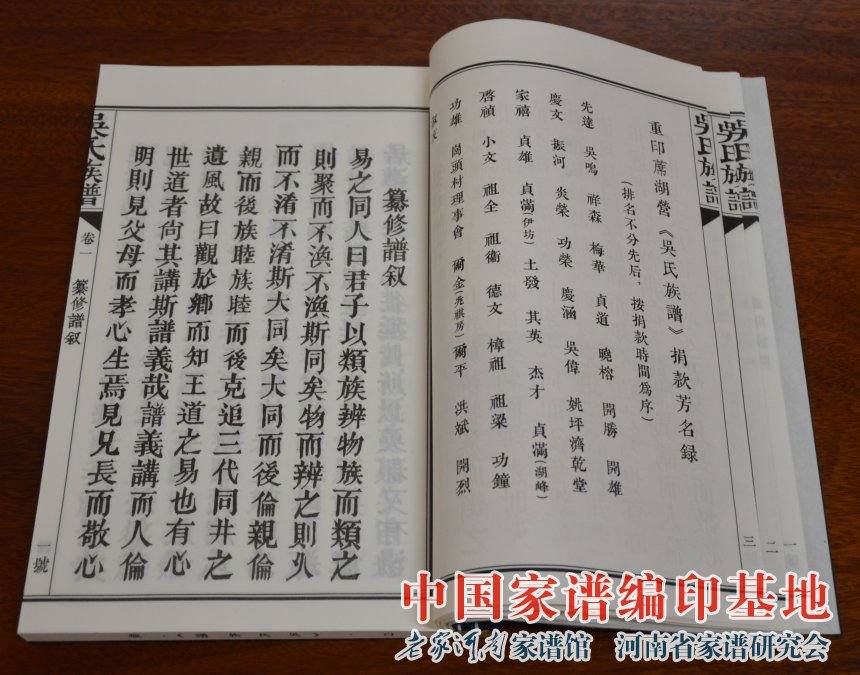 吳氏族譜
重印蓆湖營《吳氏族譜》捐款芳名録
(排名不分先后,按捐款時間爲序)
先達 吳鳴 祥森 梅華 貞道 曉榕 開勝 開雄
慶文 振河 炎榮 功榮 慶涵 吳偉 姚坪濟乾堂
家禧 貞雄 貞滿(伊坊) 土發 其英 杰才 貞滿(湖峰)
啓禎 小文 祖全 祖衛 德文 樟祖 祖梁 功鐘
功雄 崗頭村理事會 爾金(兆祺房) 爾平 洪斌 開烈
一
二
三
纂修譜叙
易之同人曰君子以類族辨物族而類之
則聚而不渙不渙斯同矣物而辨之則久
而不淆不淆斯大同矣大同而後倫親倫
親而後族睦族睦而後克追三代同井之
遺風故曰觀於鄉而知王道之易也有心
世道者尚其講斯譜義哉譜義講而人倫
明則見父母而孝心生焉見兄長而敬心
吳氏族譜
卷一
纂修譜叙
一號
中国家谱编印基地
老家河南家谱馆 河南省家谱研究会